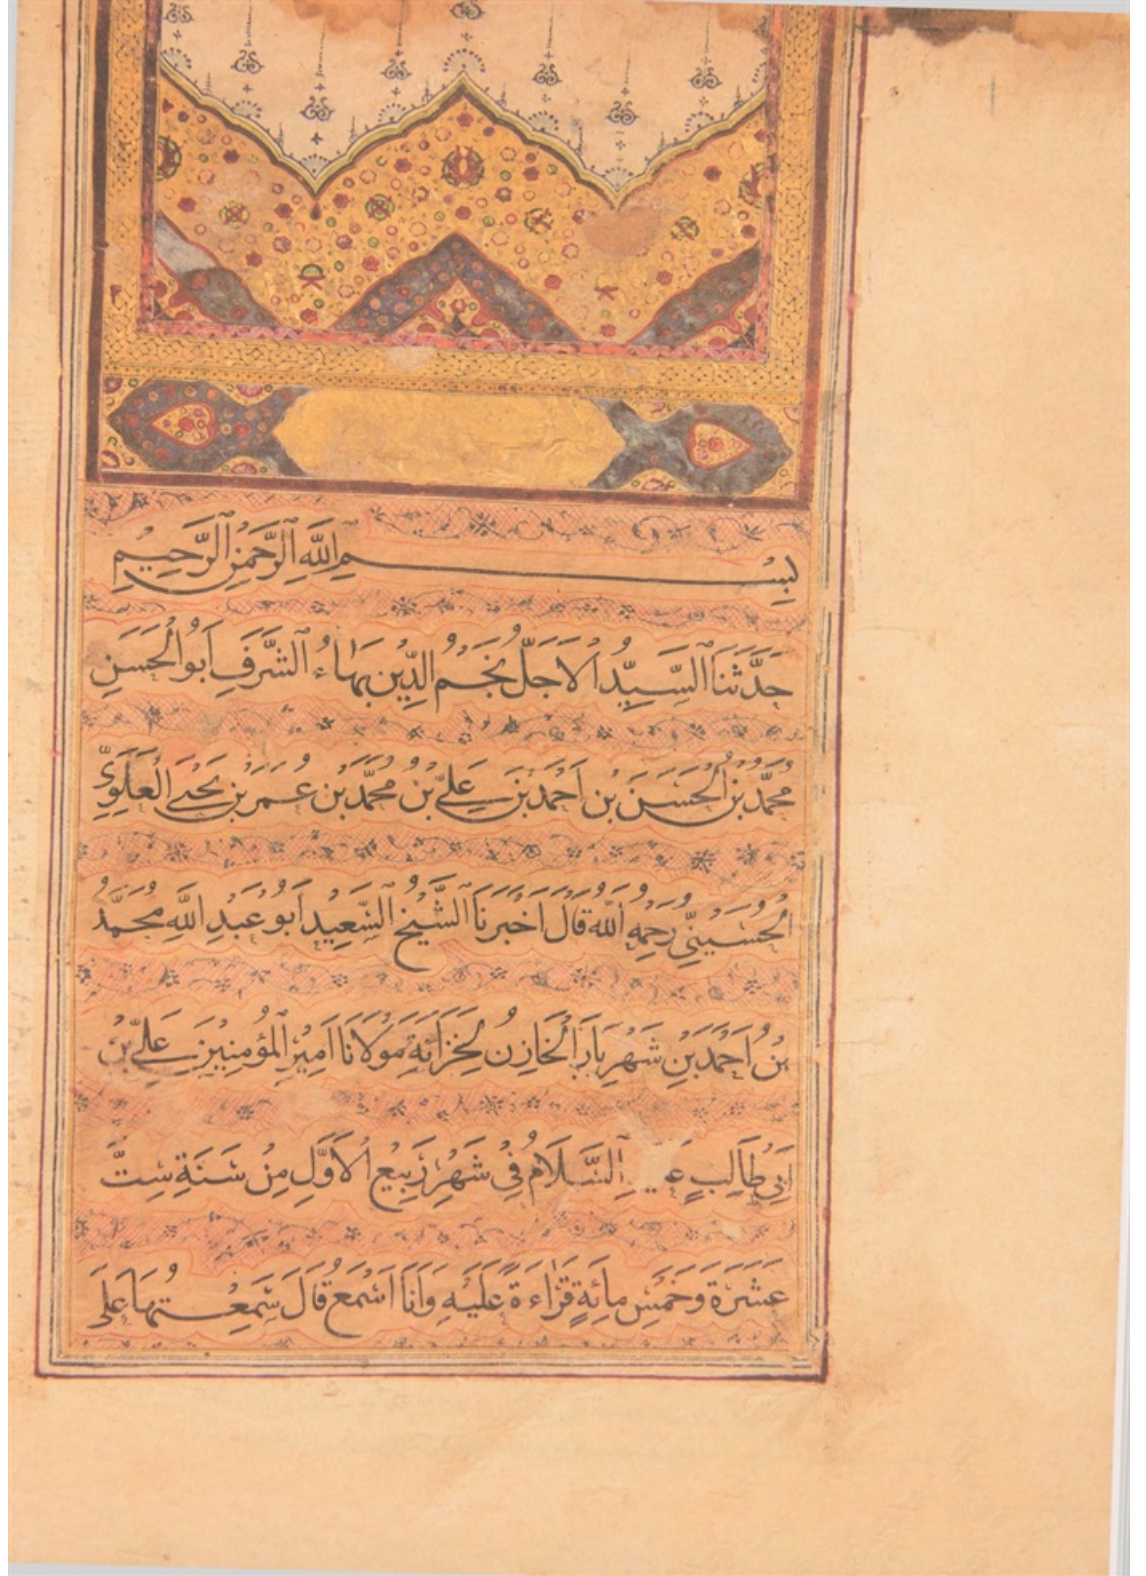 بِسْمِ اللَّهِ الرَّحْمَنِ الرَّحِيمِ
حَدَّثَنَا السَّيِّدُ الْاَجَلُّ نَجْمُ الدِّيْنِ بَهَاءُ الشَّرَفِ اَبُو الْحَسَنِ
مُحَمَّدُ بْنُ الْحَسَنِ بْنِ اَحْمَدَ بْنِ عَلِيِّ بْنِ مُحَمَّدِ بْنِ عُمَرَ بْنِ يَحْيَى الْعَلَوِيُّ
الْحُسَيْنِيُّ رَحِمَهُ اللَّهُ قَالَ اَخْبَرَنَا الشَّيْخُ السَّعِيْدُ اَبُو عَبْدِ اللَّهِ مُحَمَّدُ
بْنُ اَحْمَدَ بْنِ شَهْرِيَارَ الْخَازِنُ لِخِزَانَةِ مَوْلَانَا اَمِيْرِ الْمُؤْمِنِيْنَ عَلِيِّ بْنِ
اَبِي طَالِبٍ السَّلَامُ فِي شَهْرِ رَبِيْعِ الْاَوَّلِ مِنْ سَنَةِ سِتَّ
عَشْرَةَ وَخَمْسِ مِائَةٍ قَرَاءَةً عَلَيْهِ وَاَنَا اَسْمَعُ قَالَ سَمِعْتُهَا عَلَى